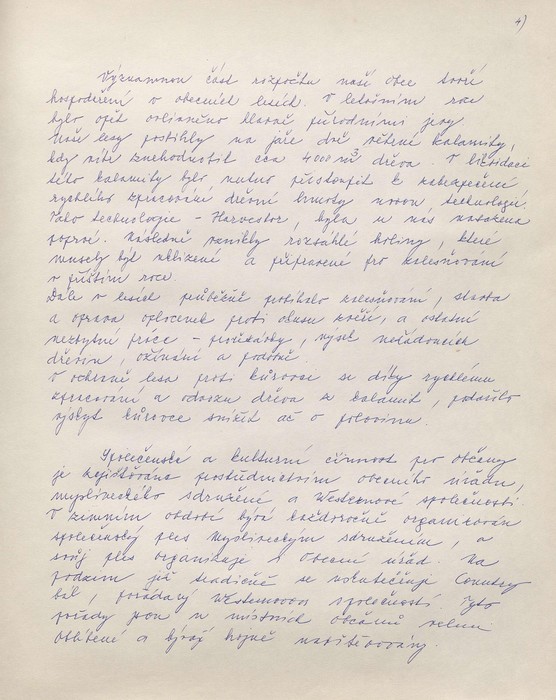 4)
Významnou část rozpočtu naší obce tvoří
hospodaření v obecních lesích. V letošním roce
bylo opět ovlivněno hlavně přírodními jevy
Naše lesy postihly na jaře dvě větrné kalamity,
kdy vítr znehodnotil cca 4000 m³ dřeva. V likvidaci
této kalamity bylo nutno přistoupit k zabezpečení
rychlého zpracování dřevní hmoty novou technologií.
Tato technologie - Harvestor, byla u nás nasazena
poprvé. Následně vznikly rozsáhlé holiny, které
musely být uklizené a připravené pro zalesňování
v příštím roce.
Dále v lesích průběžně probíhalo zalesňování, stavba
a oprava oplocenek proti okusu zvěří, a ostatní
nezbytné práce - prořezávky, výsek nežádoucích
dřevin, ožínání a podobně.
V ochraně lesa proti kůrovce se díky rychlému
zpracování a odvozu dřeva z kalamit, podařilo
výskyt kůrovce snížit až o polovinu.
Společenská a kulturní činnost pro občany
je zajišťována prostřednictvím obecního úřadu,
mysliveckého sdružení a Westernové společnosti
V zimním období bývá každoročně organizován
společenský ples Mysliveckým sdružením, a
svůj ples organizuje i Obecní úřad. Na
podzim již tradičně se uskutečňuje Country
bál, pořádaný Westernovou společností. Tyto
pořady jsou u místních občanů velmi
oblíbené a bývají hojně navštěvovány.